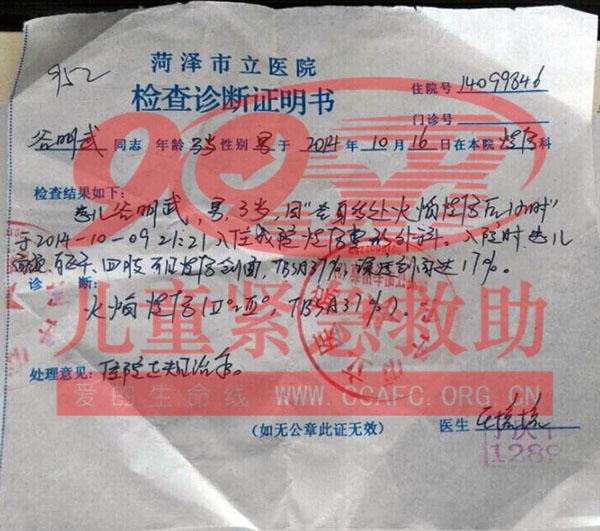 952
菏泽市立医院
检查诊断证明书
住院号 14099846
门诊号
谷明武 同志 年龄 3岁 性别 男 于 2014 年 10 月 16 日在本院 烧伤 科
检查结果如下:
患儿谷明武,男,3岁,因"全身多处火焰烧伤后1小时"
于2014-10-09 21:21入住我院烧伤整形外科。入院时患儿
四肢可见烧伤创面,TBSA37%,深度创面达17%。
诊 断:
火焰烧伤(Ⅱ°-Ⅲ°,TBSA37%)。
处理意见: 住院
(如无公章此证无效)
医生
1289
儿童紧急救助
爱的生命线 WWW.CCAFC.ORG.CN